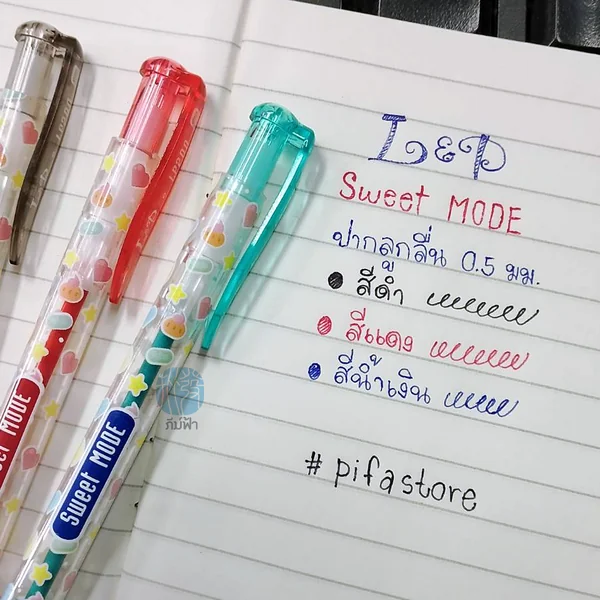 L&P
Sweet MODE
ปากลูกลื่น 0.5 มม.
สีดำ
สีแดง
สีน้ำเงิน
# pifastore
Sweet MODE
Sweet MODE
ภีม์ฟ้า